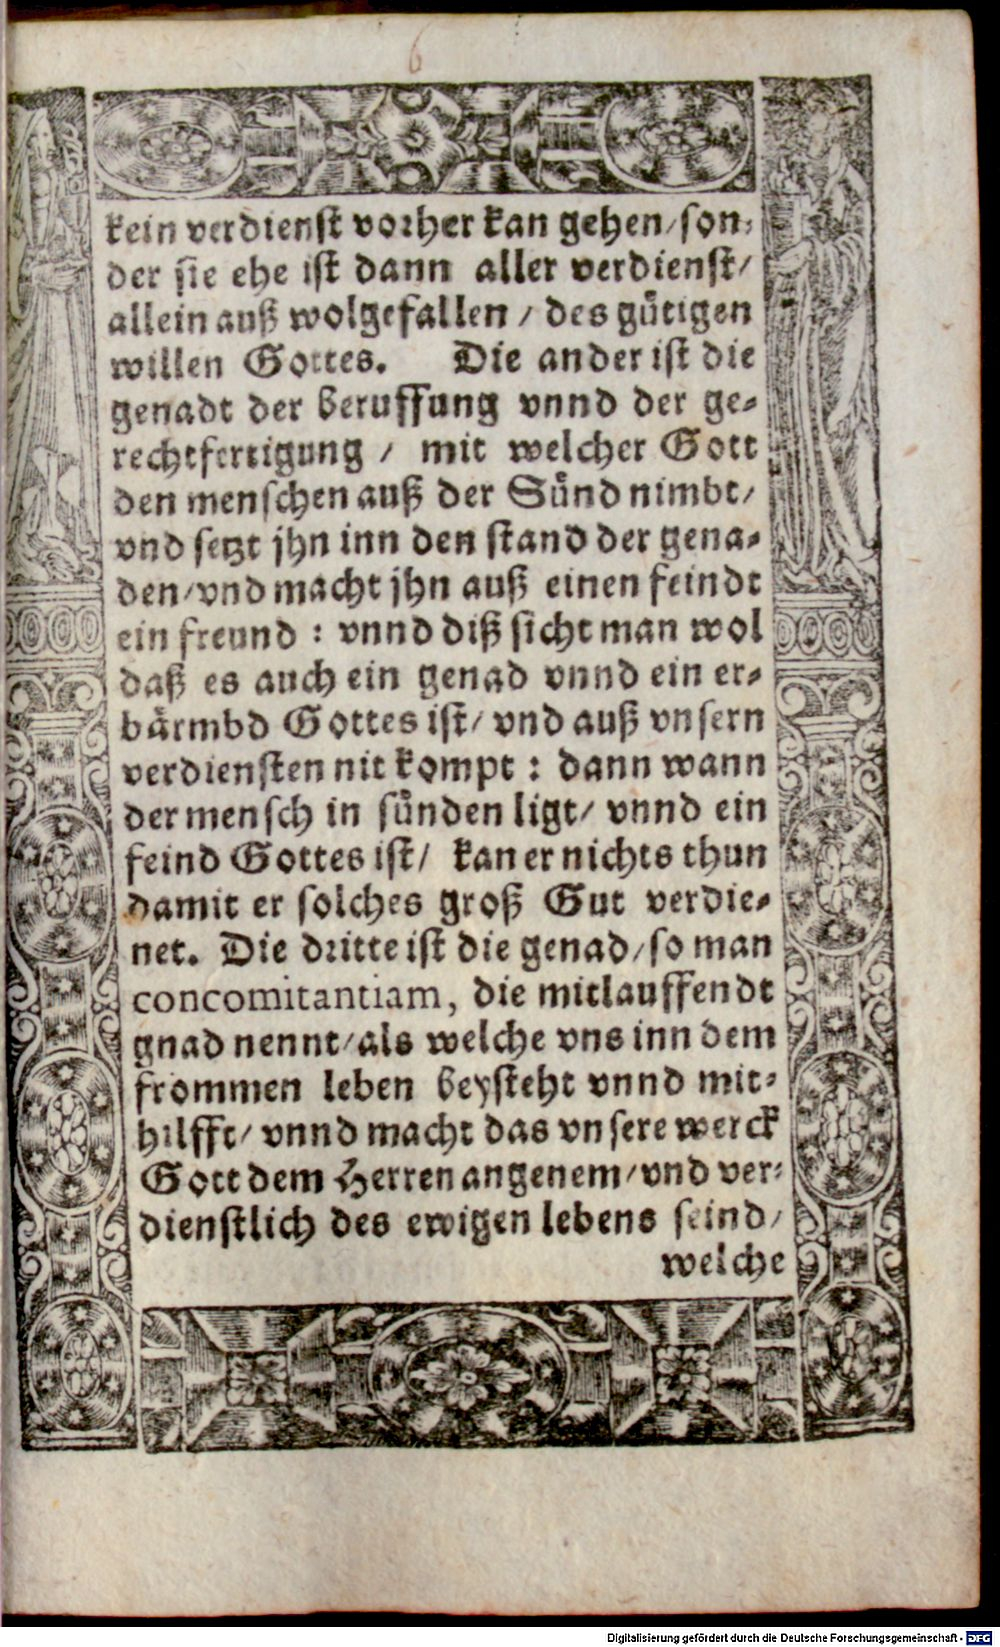 6
kein verdienst vorher kan gehen/son-
der sie ehe ist dann aller verdienst/
allein auß wolgefallen / des gütigen
willen Gottes. Die ander ist die
genadt der beruffung vnnd der ge-
rechtfertigung / mit welcher Gott
den menschen auß der Sünd nimbt/
vnd setzt jhn inn den stand der gena-
den/vnd macht jhn auß einen feindt
ein freund : vnnd diß sicht man wol
daß es auch ein genad vnnd ein er-
bärmbd Gottes ist/ vnd auß vnsern
verdiensten nit kompt : dann wann
der mensch in sünden ligt/ vnnd ein
feind Gottes ist/ kan er nichts thun
damit er solches groß Gut verdie-
net. Die dritte ist die genad/so man
concomitantiam, die mitlauffendt
gnad nennt/als welche vns inn dem
frommen leben beysteht vnnd mit-
hilfft/ vnnd macht das vnsere werck
Gott dem Herren angenem/vnd ver-
dienstlich des ewigen lebens seind/
welche
Digitalisierung gefördert durch die Deutsche Forschungsgemeinschaft - DFG